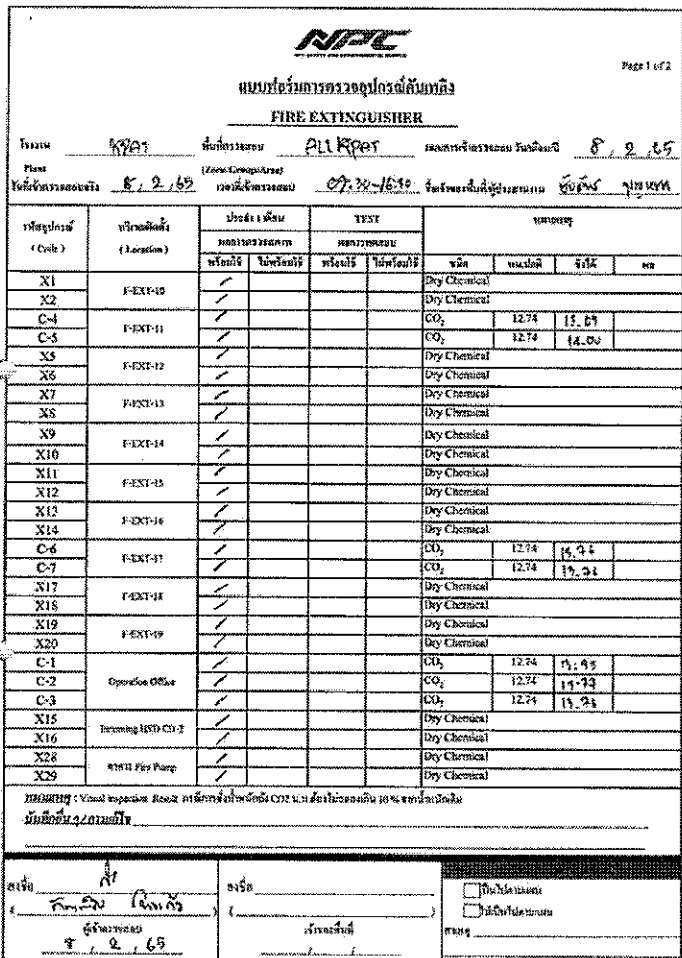 NPC
Page 1 of 2
แบบฟอร์มการตรวจอุปกรณ์ดับเพลิง
FIRE EXTINGUISHER
โรงงาน พื้นที่ตรวจสอบ All แผนการเข้าตรวจสอบ วัน/เดือน/ปี 8, 2, 65
Plant (Zone/Group/Area)
วันที่เข้าตรวจสอบจริง 8, 2, 65 เวลาที่เข้าตรวจสอบ 09:30-16:30 ชื่อเจ้าของพื้นที่/ผู้ประสานงาน
รหัสอุปกรณ์ บริเวณติดตั้ง ประจำ 1 เดือน TEST หมายเหตุ
( Code ) ( Location ) ผลการตรวจสภาพ ผลการทดสอบ
พร้อมใช้ ไม่พร้อมใช้ พร้อมใช้ ไม่พร้อมใช้ ชนิด นน.ปกติ ชั่งได้ ผล
X1 F-EXT-10 / Dry Chemical
X2 / Dry Chemical
C-4 F-EXT-11 / CO2 12.74
C-5 / CO2 12.74 14.00
X5 F-EXT-12 / Dry Chemical
X6 / Dry Chemical
X7 F-EXT-13 / Dry Chemical
X8 / Dry Chemical
X9 F-EXT-14 / Dry Chemical
X10 / Dry Chemical
X11 F-EXT-15 / Dry Chemical
X12 / Dry Chemical
X13 F-EXT-16 / Dry Chemical
X14 / Dry Chemical
C-6 F-EXT-17 / CO2 12.74
C-7 / CO2 12.74
X17 F-EXT-18 / Dry Chemical
X18 / Dry Chemical
X19 F-EXT-19 / Dry Chemical
X20 / Dry Chemical
C-1 Operation Office / CO2 12.74
C-2 / CO2 12.74
C-3 / CO2 12.74
X15 / Dry Chemical
X16 / Dry Chemical
X28 อาคาร Fire Pump / Dry Chemical
X29 / Dry Chemical
หมายเหตุ : Visual inspection Result กรณีการชั่งน้ำหนักถัง CO2 น.น ต้องไม่ลดลงเกิน 10 % จากน้ำหนักเดิม
บันทึกอื่น ๆ/การแก้ไข
ลงชื่อ ลงชื่อ
ผู้เข้าตรวจสอบ เจ้าของพื้นที่
8, 2, 65
เป็นไปตามแผน
ไม่เป็นไปตามแผน
สาเหตุ